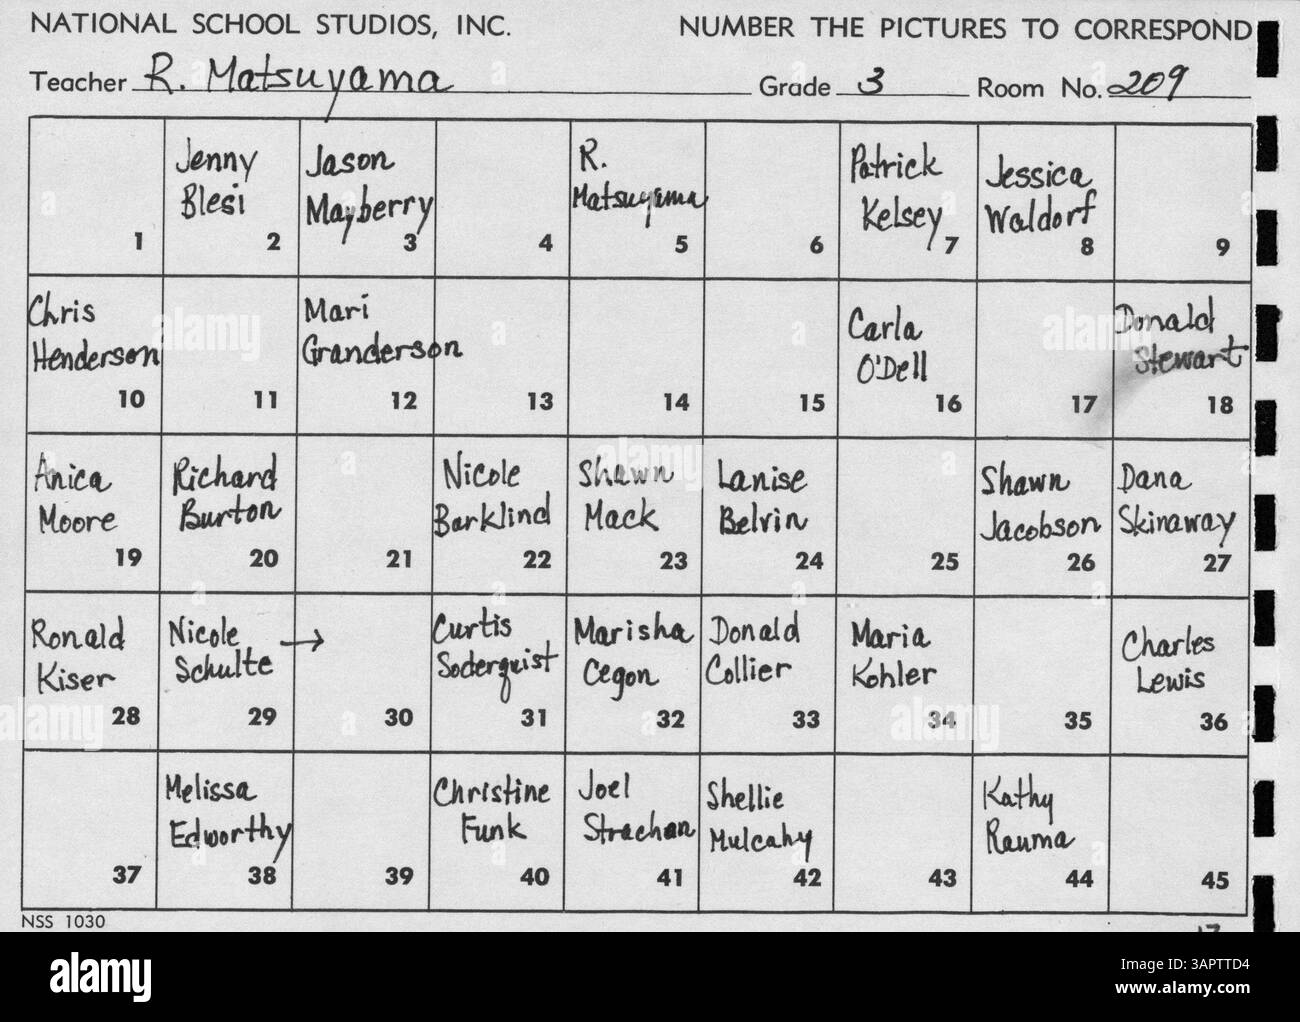 NATIONAL SCHOOL STUDIOS, INC. NUMBER THE PICTURES TO CORRESPOND
Teacher R. Matsuyama Grade 3 Room No. 209
1
Jenny
Blesi
2
Jason
Mayberry
3
4
R.
Matsuyama
5
6
Patrick
Kelsey
7
Jessica
Waldorf
8
9
Chris
Henderson
10
11
Mari
Granderson
12
13
14
15
Carla
O'Dell
16
17
Donald
Stewart
18
Anica
Moore
19
Richard
Burton
20
21
Nicole
Barklind
22
Shawn
Mack
23
Lanise
Belvin
24
25
Shawn
Jacobson
26
Dana
Skinaway
27
Ronald
Kiser
28
Nicole →
Schulte
29
30
Curtis
Soderquist
31
Marisha
Cegon
32
Donald
Collier
33
Maria
Kohler
34
35
Charles
Lewis
36
37
Melissa
Edworthy
38
39
Christine
Funk
40
Joel
Strachan
41
Shellie
Mulcahy
42
43
Kathy
Rauma
44
45
NSS 1030
alamy
Image ID: 3APTTD4
www.alamy.com